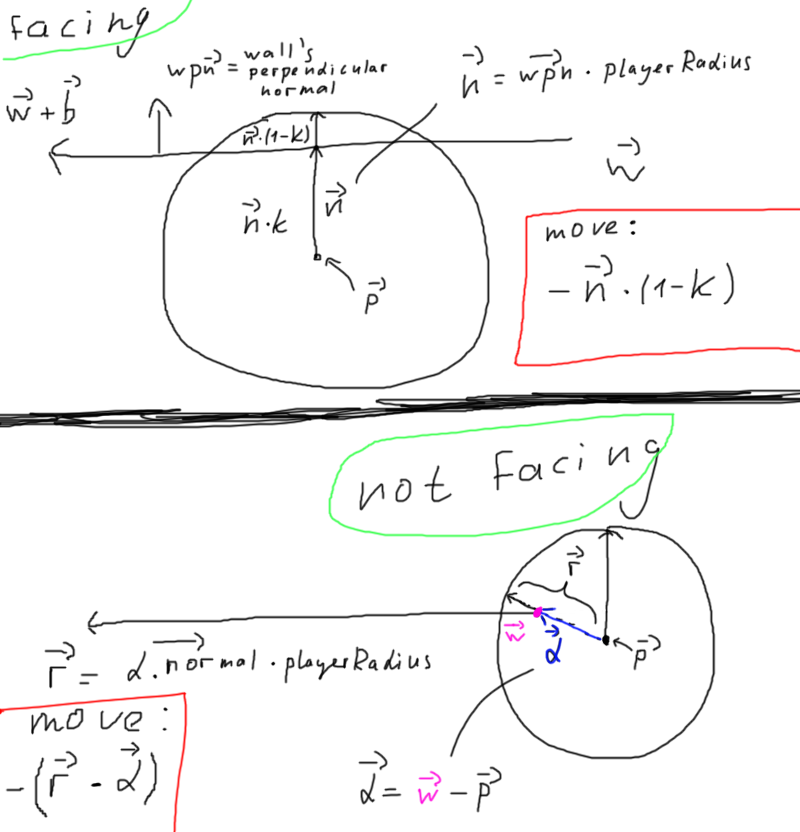 facing
wpn⃗ = wall's
perpendicular
normal
n⃗ = wp⃗n · playerRadius
w⃗ + b⃗
n⃗·(1-k)
w⃗
n⃗·k
n⃗
p⃗
move:
- n⃗ · (1-k)
not facing
r⃗
w⃗
α⃗
p⃗
r⃗ = α.normal⃗ · playerRadius
move:
-(r⃗ - α⃗)
α⃗ = w⃗ - p⃗